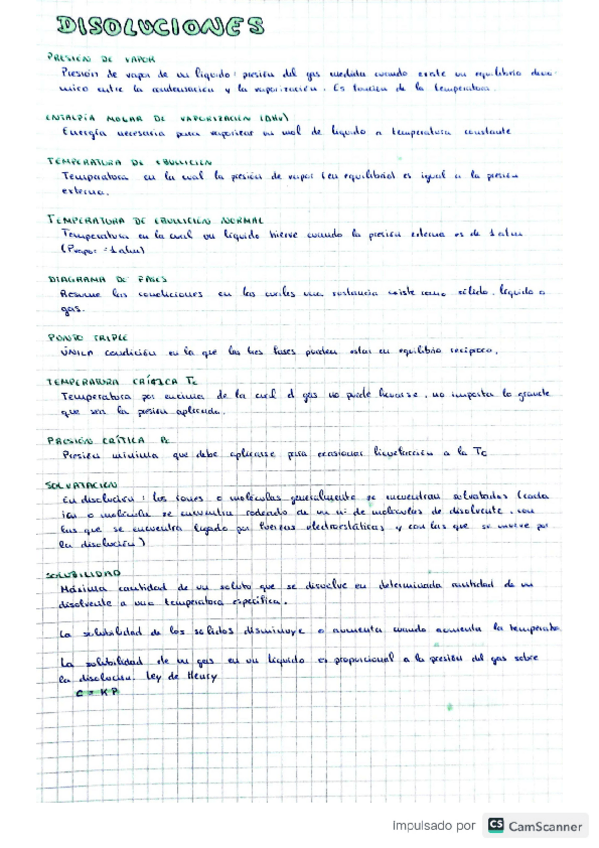 DISOLUCIONES
PRESIÓN DE VAPOR
Presión de vapor de un líquido: presión del gas medida cuando existe un equilibrio diná-
mico entre la condensación y la vaporización. Es función de la temperatura.
ENTALPÍA MOLAR DE VAPORIZACIÓN (ΔHv)
Energía necesaria para vaporizar un mol de líquido a temperatura constante
TEMPERATURA DE EBULLICIÓN
Temperatura en la cual la presión de vapor (en equilibrio) es igual a la presión
externa.
TEMPERATURA DE EBULLICIÓN NORMAL
Temperatura en la cual un líquido hierve cuando la presión externa es de 1 atm
(Pvapor = 1 atm)
DIAGRAMA DE FASES
Resume las condiciones en las cuales una sustancia existe como sólido, líquido o
gas.
PUNTO TRIPLE
ÚNICA condición en la que las tres fases pueden estar en equilibrio recíproco.
TEMPERATURA CRÍTICA Tc
Temperatura por encima de la cual el gas no puede licuarse, no importa lo grande
que sea la presión aplicada.
PRESIÓN CRÍTICA Pc
Presión mínima que debe aplicarse para ocasionar licuefacción a la Tc
SOLVATACIÓN
En disolución: los iones o moléculas generalmente se encuentran solvatados (cada
ion o molécula se encuentra rodeado de un nº de moléculas de disolvente, con
las que se encuentra ligado por fuerzas electrostáticas y con las que se mueve por
la disolución)
SOLUBILIDAD
Máxima cantidad de un soluto que se disuelve en determinada cantidad de un
disolvente a una temperatura específica.
La solubilidad de los sólidos disminuye o aumenta cuando aumenta la temperatura
La solubilidad de un gas en un líquido es proporcional a la presión del gas sobre
la disolución. Ley de Henry
C = K P
Impulsado por CS CamScanner